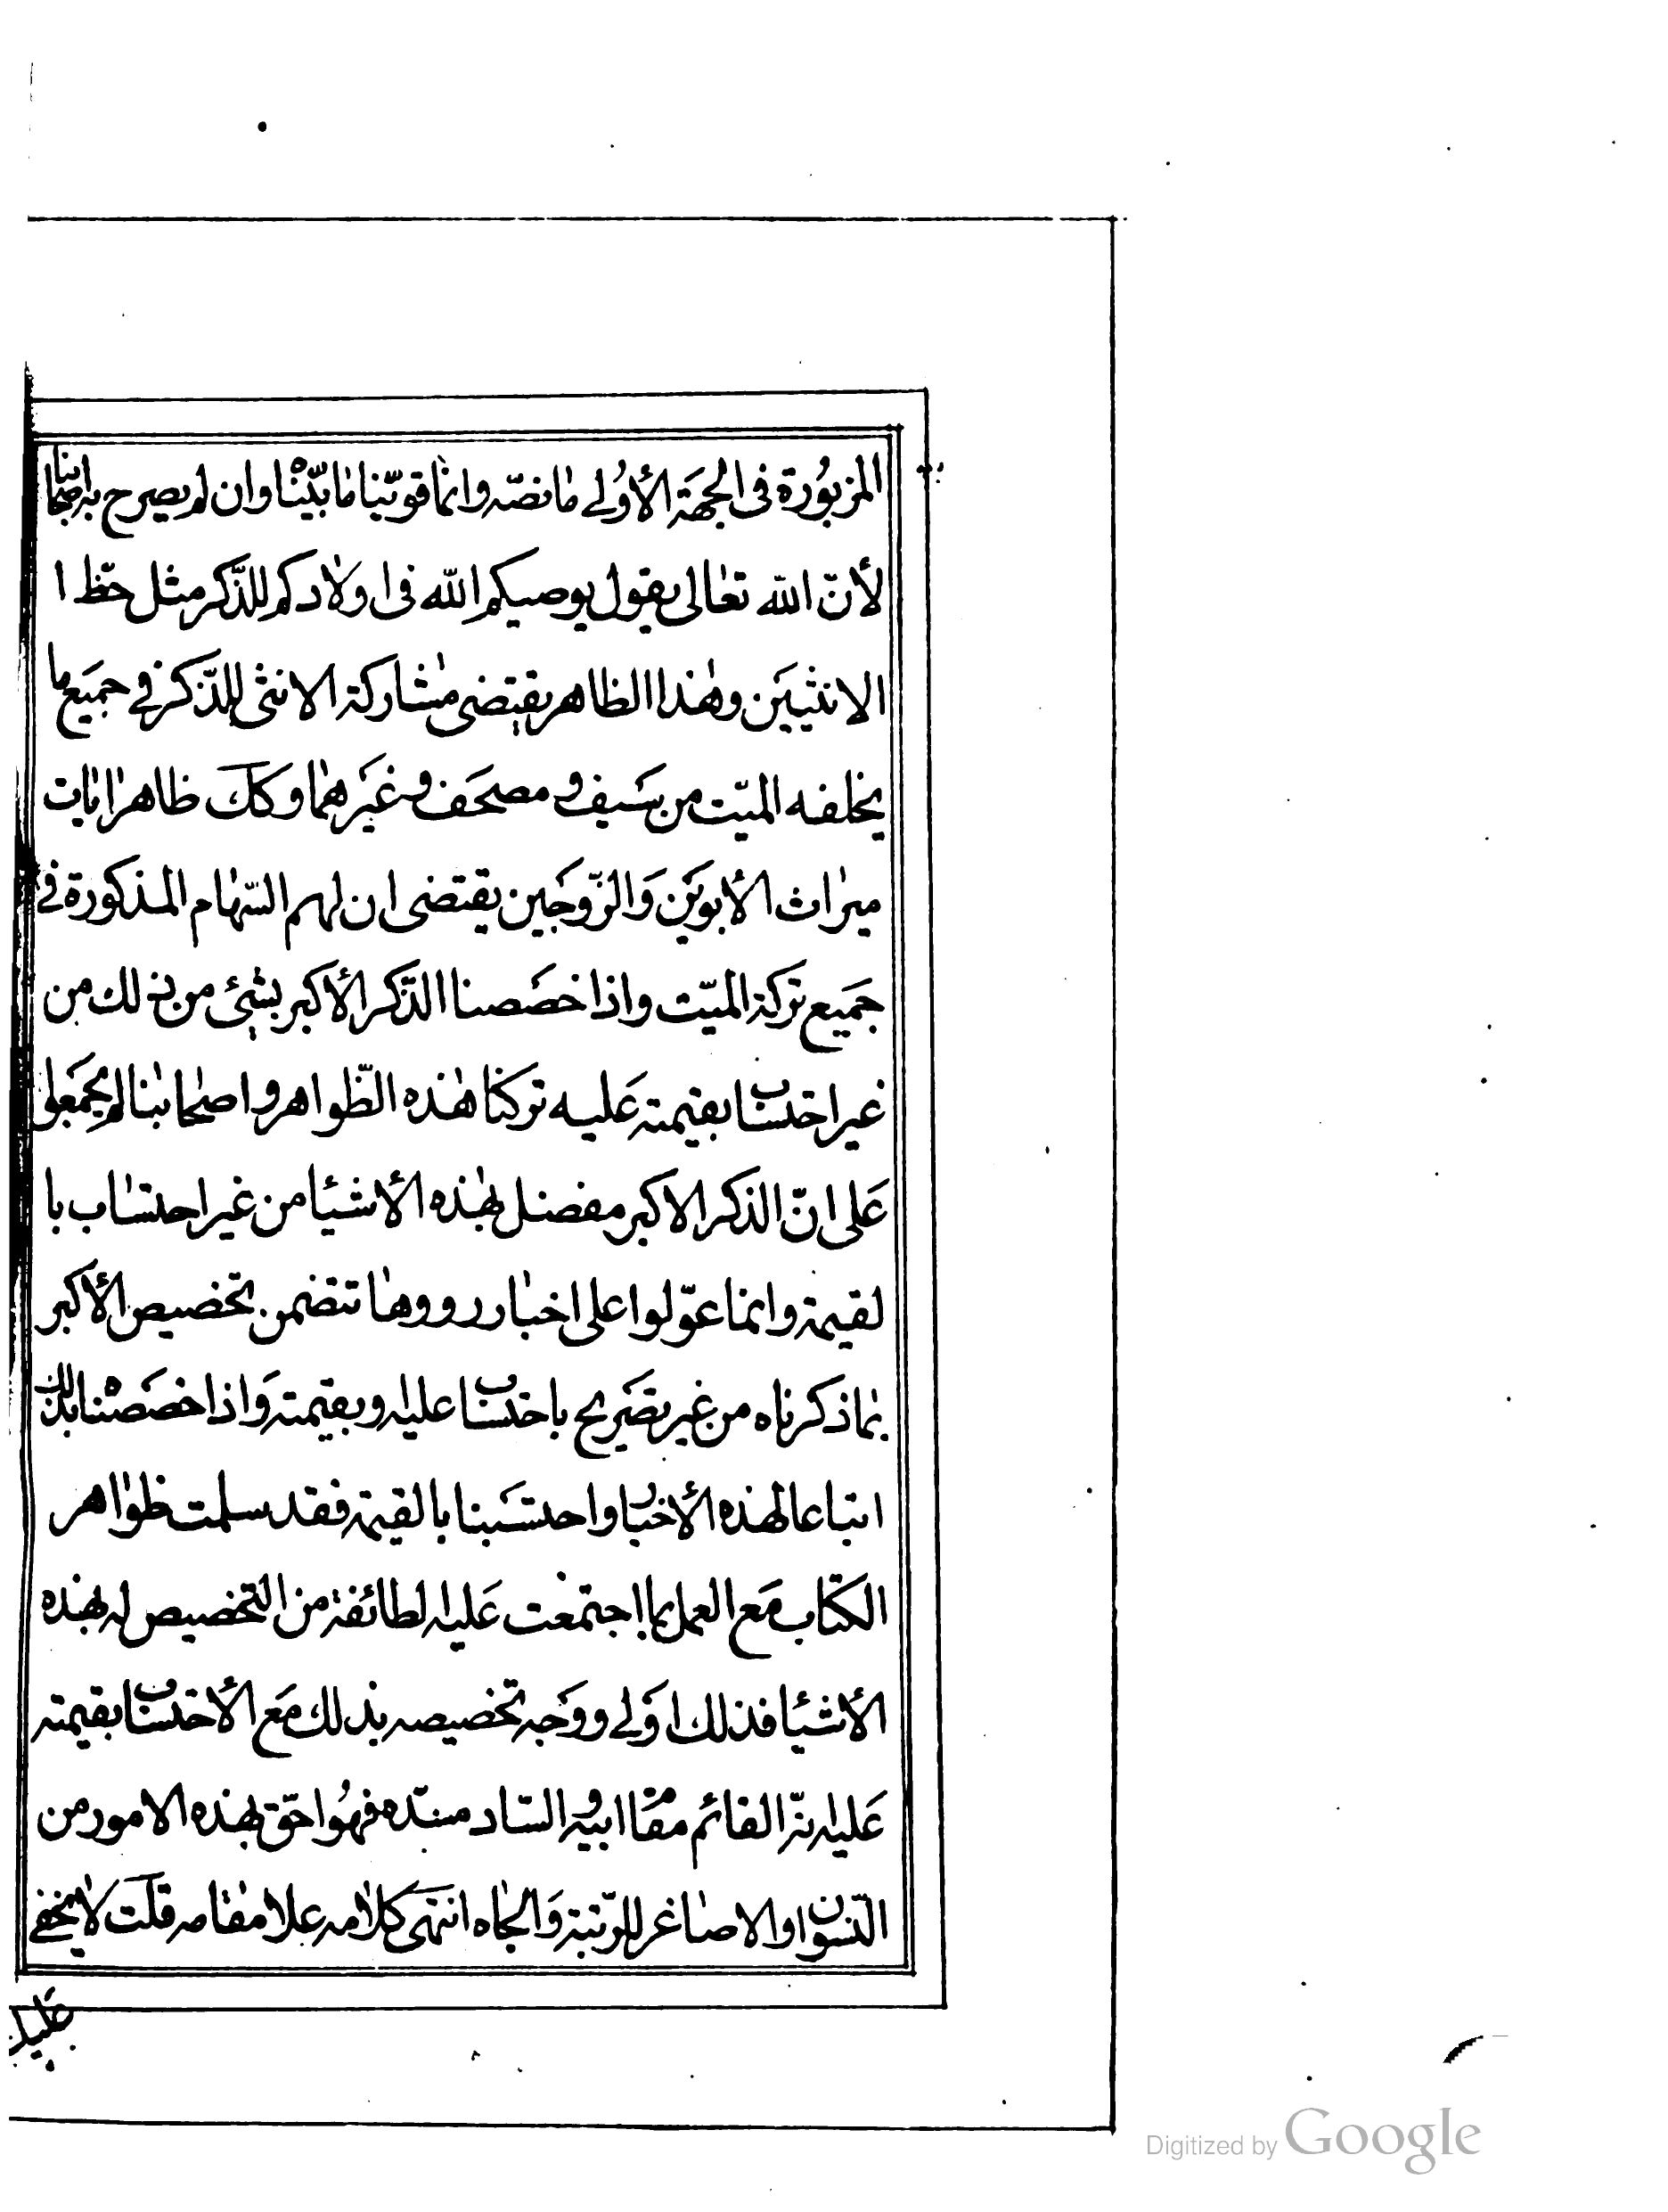 المزبورة فى الجهة الأولے ما نصّه وانما قوّينا ما بيّنّاه وان لم يصرح به اصحابنا
لأنّ الله تعالى يقول يوصيكم الله فى اولادكم للذّكر مثل حظّ ا
الانثيين وهذا الظاهر يقتضى مشاركة الانثى للذّكر فے جميع ما
يخلفه الميّت من سيف و مصحف و غيرهما وكك ظاهر ايات
ميراث الأبوين والزّوجين يقتضى ان لهم السّهام المذكورة فے
جميع تركة الميّت واذا خصصنا الذّكر الأكبر بشئ من ذلك من
غير احتساب بقيمته عليه تركنا هذه الظّواهر و اصحابنا لم يجمعوا
على انّ الذكر الاكبر مفضل بهذه الأشيا من غير احتساب با
لقيمة وانما عوّلوا على اخبار رووها تتضمن تخصيص الأكبر
بما ذكرناه من غير تصريح باحتساب عليه وبقيمته واذا خصصناه بذلك
اتباعا لهذه الأخبار واحتسبنا بالقيمة فقد سلمت ظواهر
الكتاب مع العمل بما اجتمعت عليه لطائفة من التخصيص له بهذه
الأشيا فذلك اولے ووجه تخصيصه بذلك مع الأحتساب بقيمته
عليه انّه القائم مقام ابيه و السّاد مسدّه فهو احقّ بهذه الامور من
النّسوان والاصاغر للرّتبة والجاه انتهى كلامه علا مقامه قلت لا يخفے
عليك